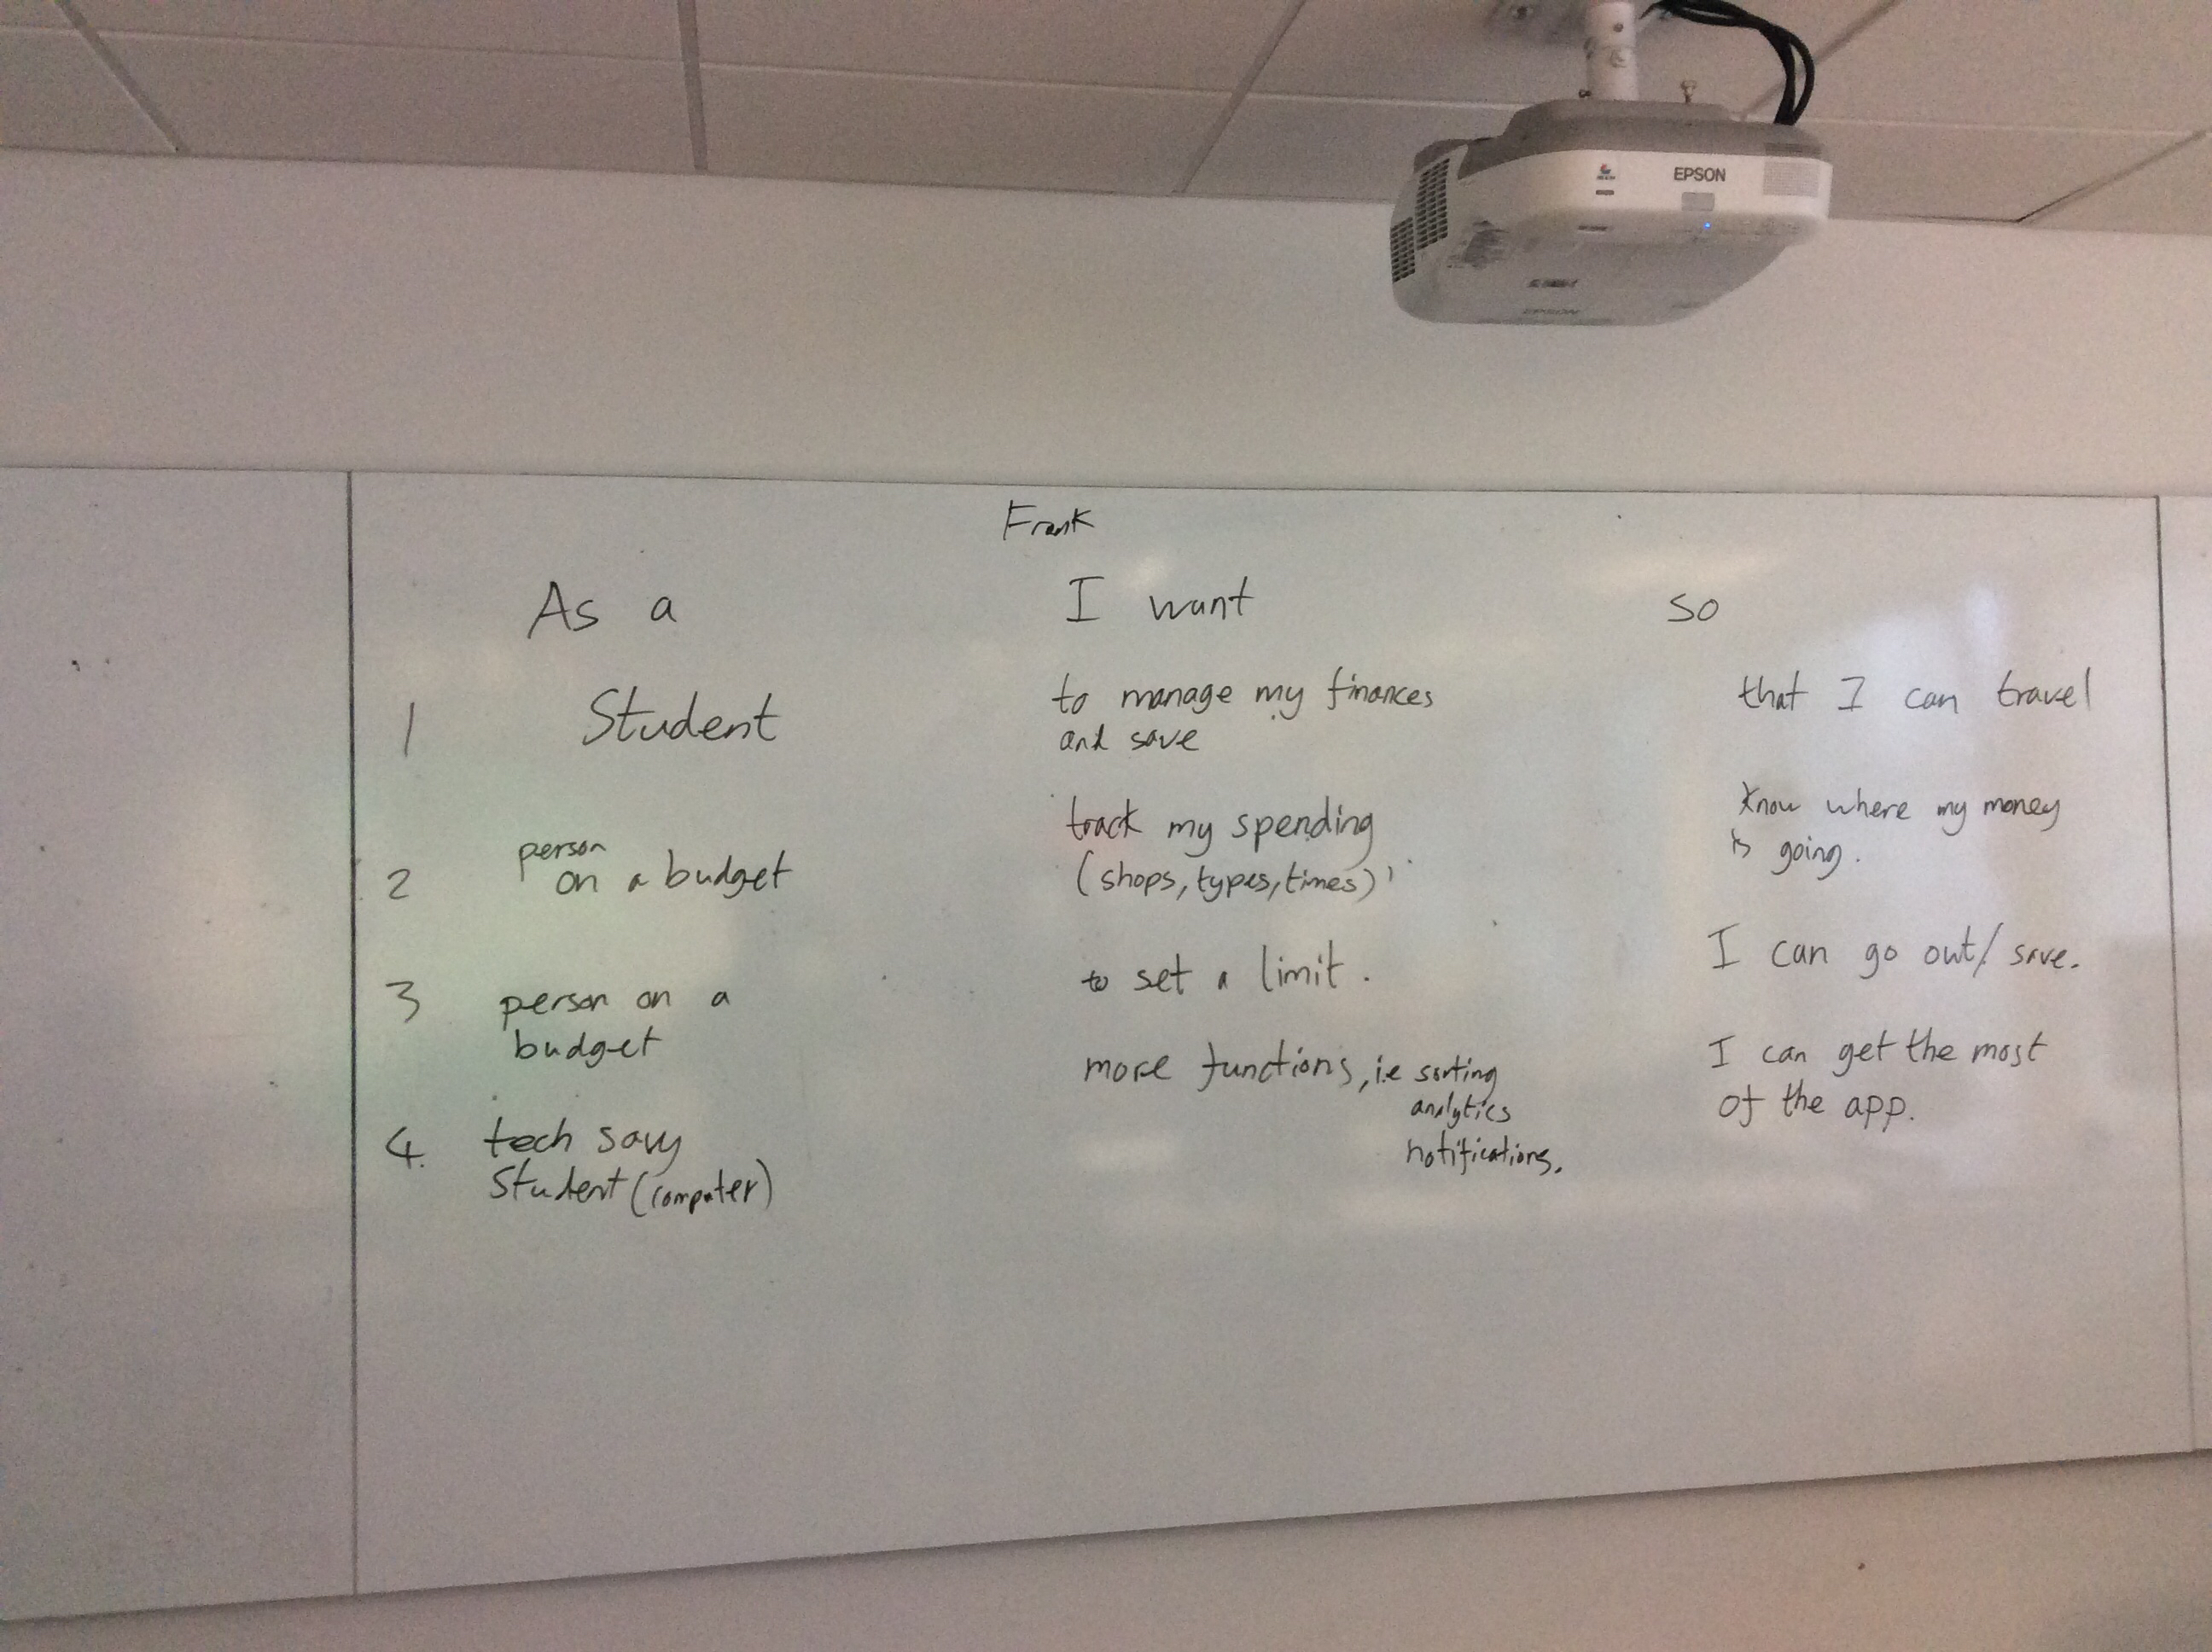 EPSON
EPSON
Frank
As a
I want
so
1
Student
to manage my finances
and save
that I can travel
2
person
on a budget
track my spending
(shops, types, times)
Know where my money
is going.
3
person on a
budget
to set a limit.
I can go out/save.
4.
tech savy
student (computer)
more functions, i.e sorting
analytics
notifications.
I can get the most
of the app.